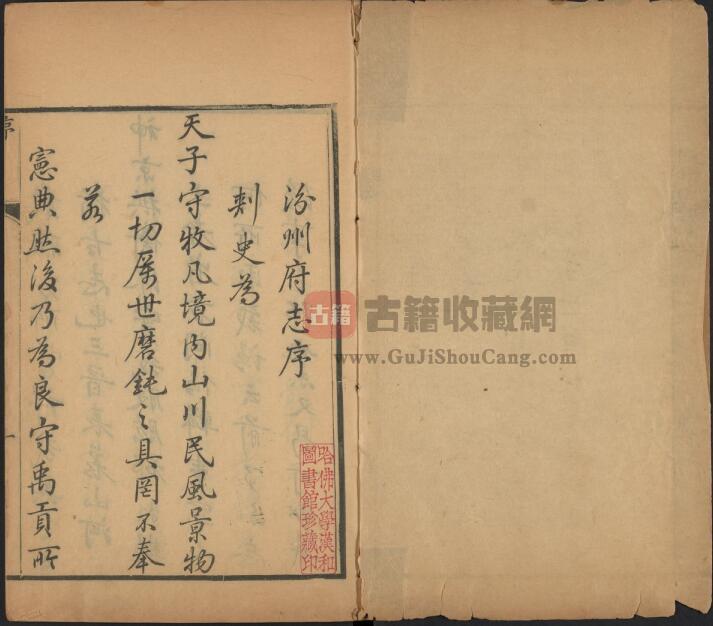 汾州府志序
刺史為
天子守牧凡境内山川民風景物
一切厲世磨鈍之具罔不奉
若
憲典然後乃為良守禹貢所
序
一
哈佛大學漢和
圖書館珍藏印
古籍
古籍收藏網
www.GuJiShouCang.com